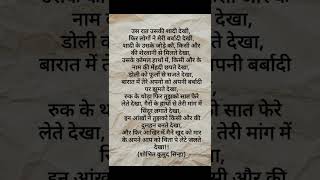 उस रात उसकी शादी देखी,
फिर लोगों ने मेरी बर्बादी देखी,
शादी के उसके जोड़े को, किसी और
की शेरवानी से मिलते देखा,
उसके कोमल हाथों में, किसी और के
नाम की मेंहदी रचते देखा,
डोली को फूलों से सजते देखा,
बारात में तेरे अपनो को अपनी बर्बादी
पर झुमते देखा,
रुक के थोड़ा फिर तुझको सात फेरे
लेते देखा, गैरों के हाथों से तेरी मांग में
सिंदुर लगाते देखा,
इन आंखों ने तुझको किसी और की
दुल्हन बनते देखा,
और फिर आखिर में मैंने खुद को मार
के अपने आप को चिता पे लेटे जलते
देखा!!
(शोभित कुमुद सिन्हा)